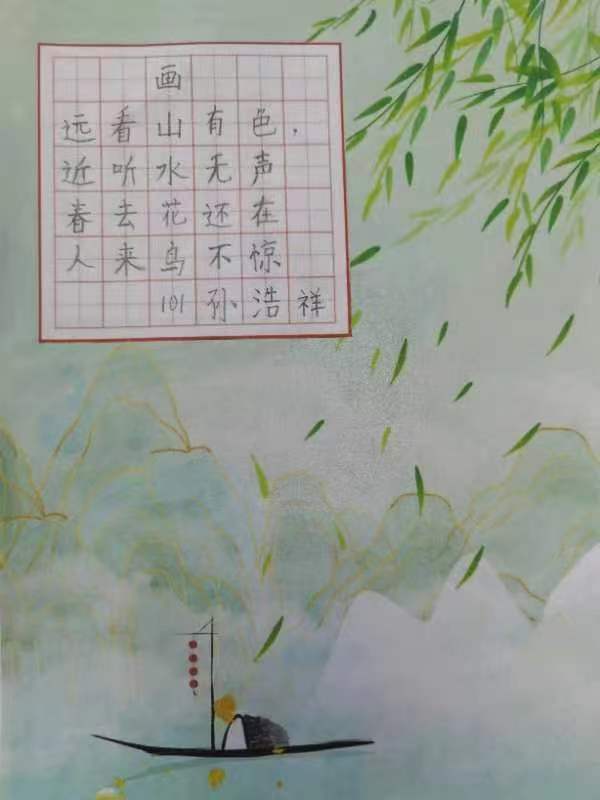 画
远看山有色，
近听水无声
春去花还在
人来鸟不惊
101 孙浩祥